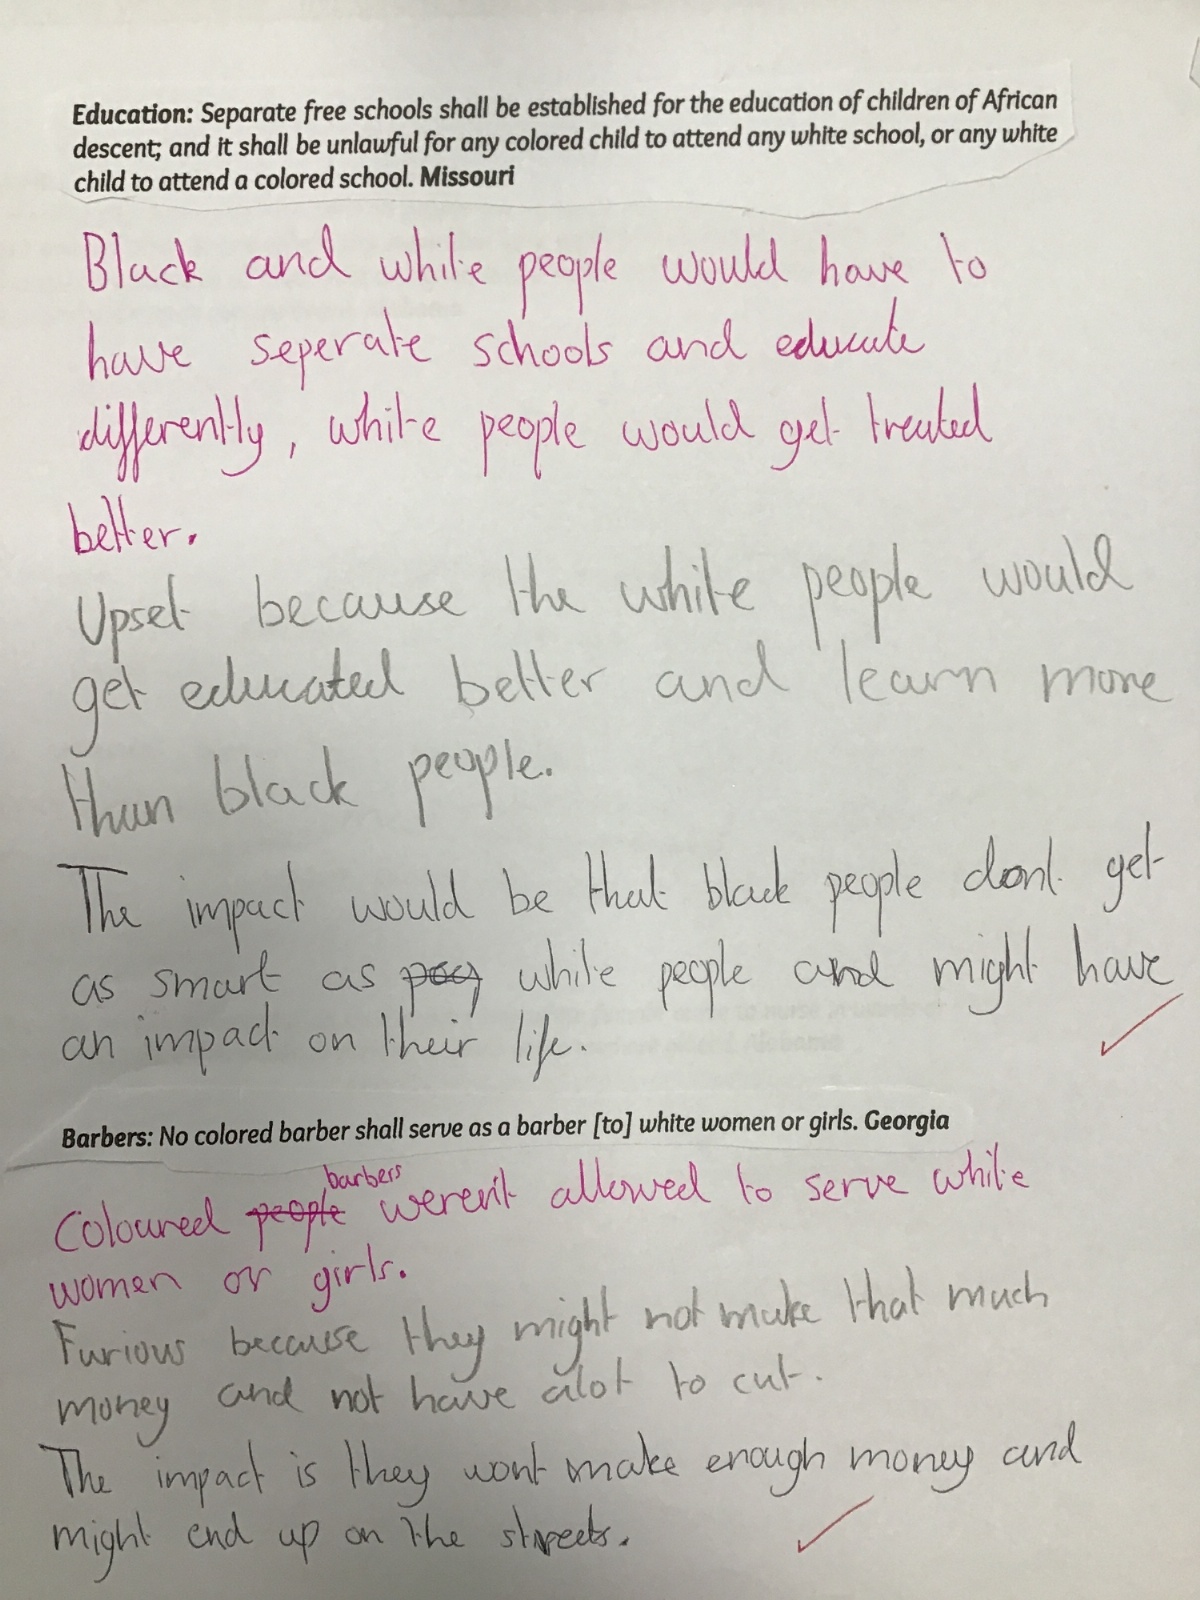 Education: Separate free schools shall be established for the education of children of African
descent; and it shall be unlawful for any colored child to attend any white school, or any white
child to attend a colored school. Missouri
Black and white people would have to
have seperate schools and educate
differently, white people would get treated
better.
Upset because the white people would
get educated better and learn more
than black people.
The impact would be that black people dont get
as smart as white people and might have
an impact on their life.
Barbers: No colored barber shall serve as a barber [to] white women or girls. Georgia
barbers
Coloured people weren't allowed to serve white
women or girls.
Furious because they might not make that much
money and not have alot to cut.
The impact is they wont make enough money and
might end up on the streets.